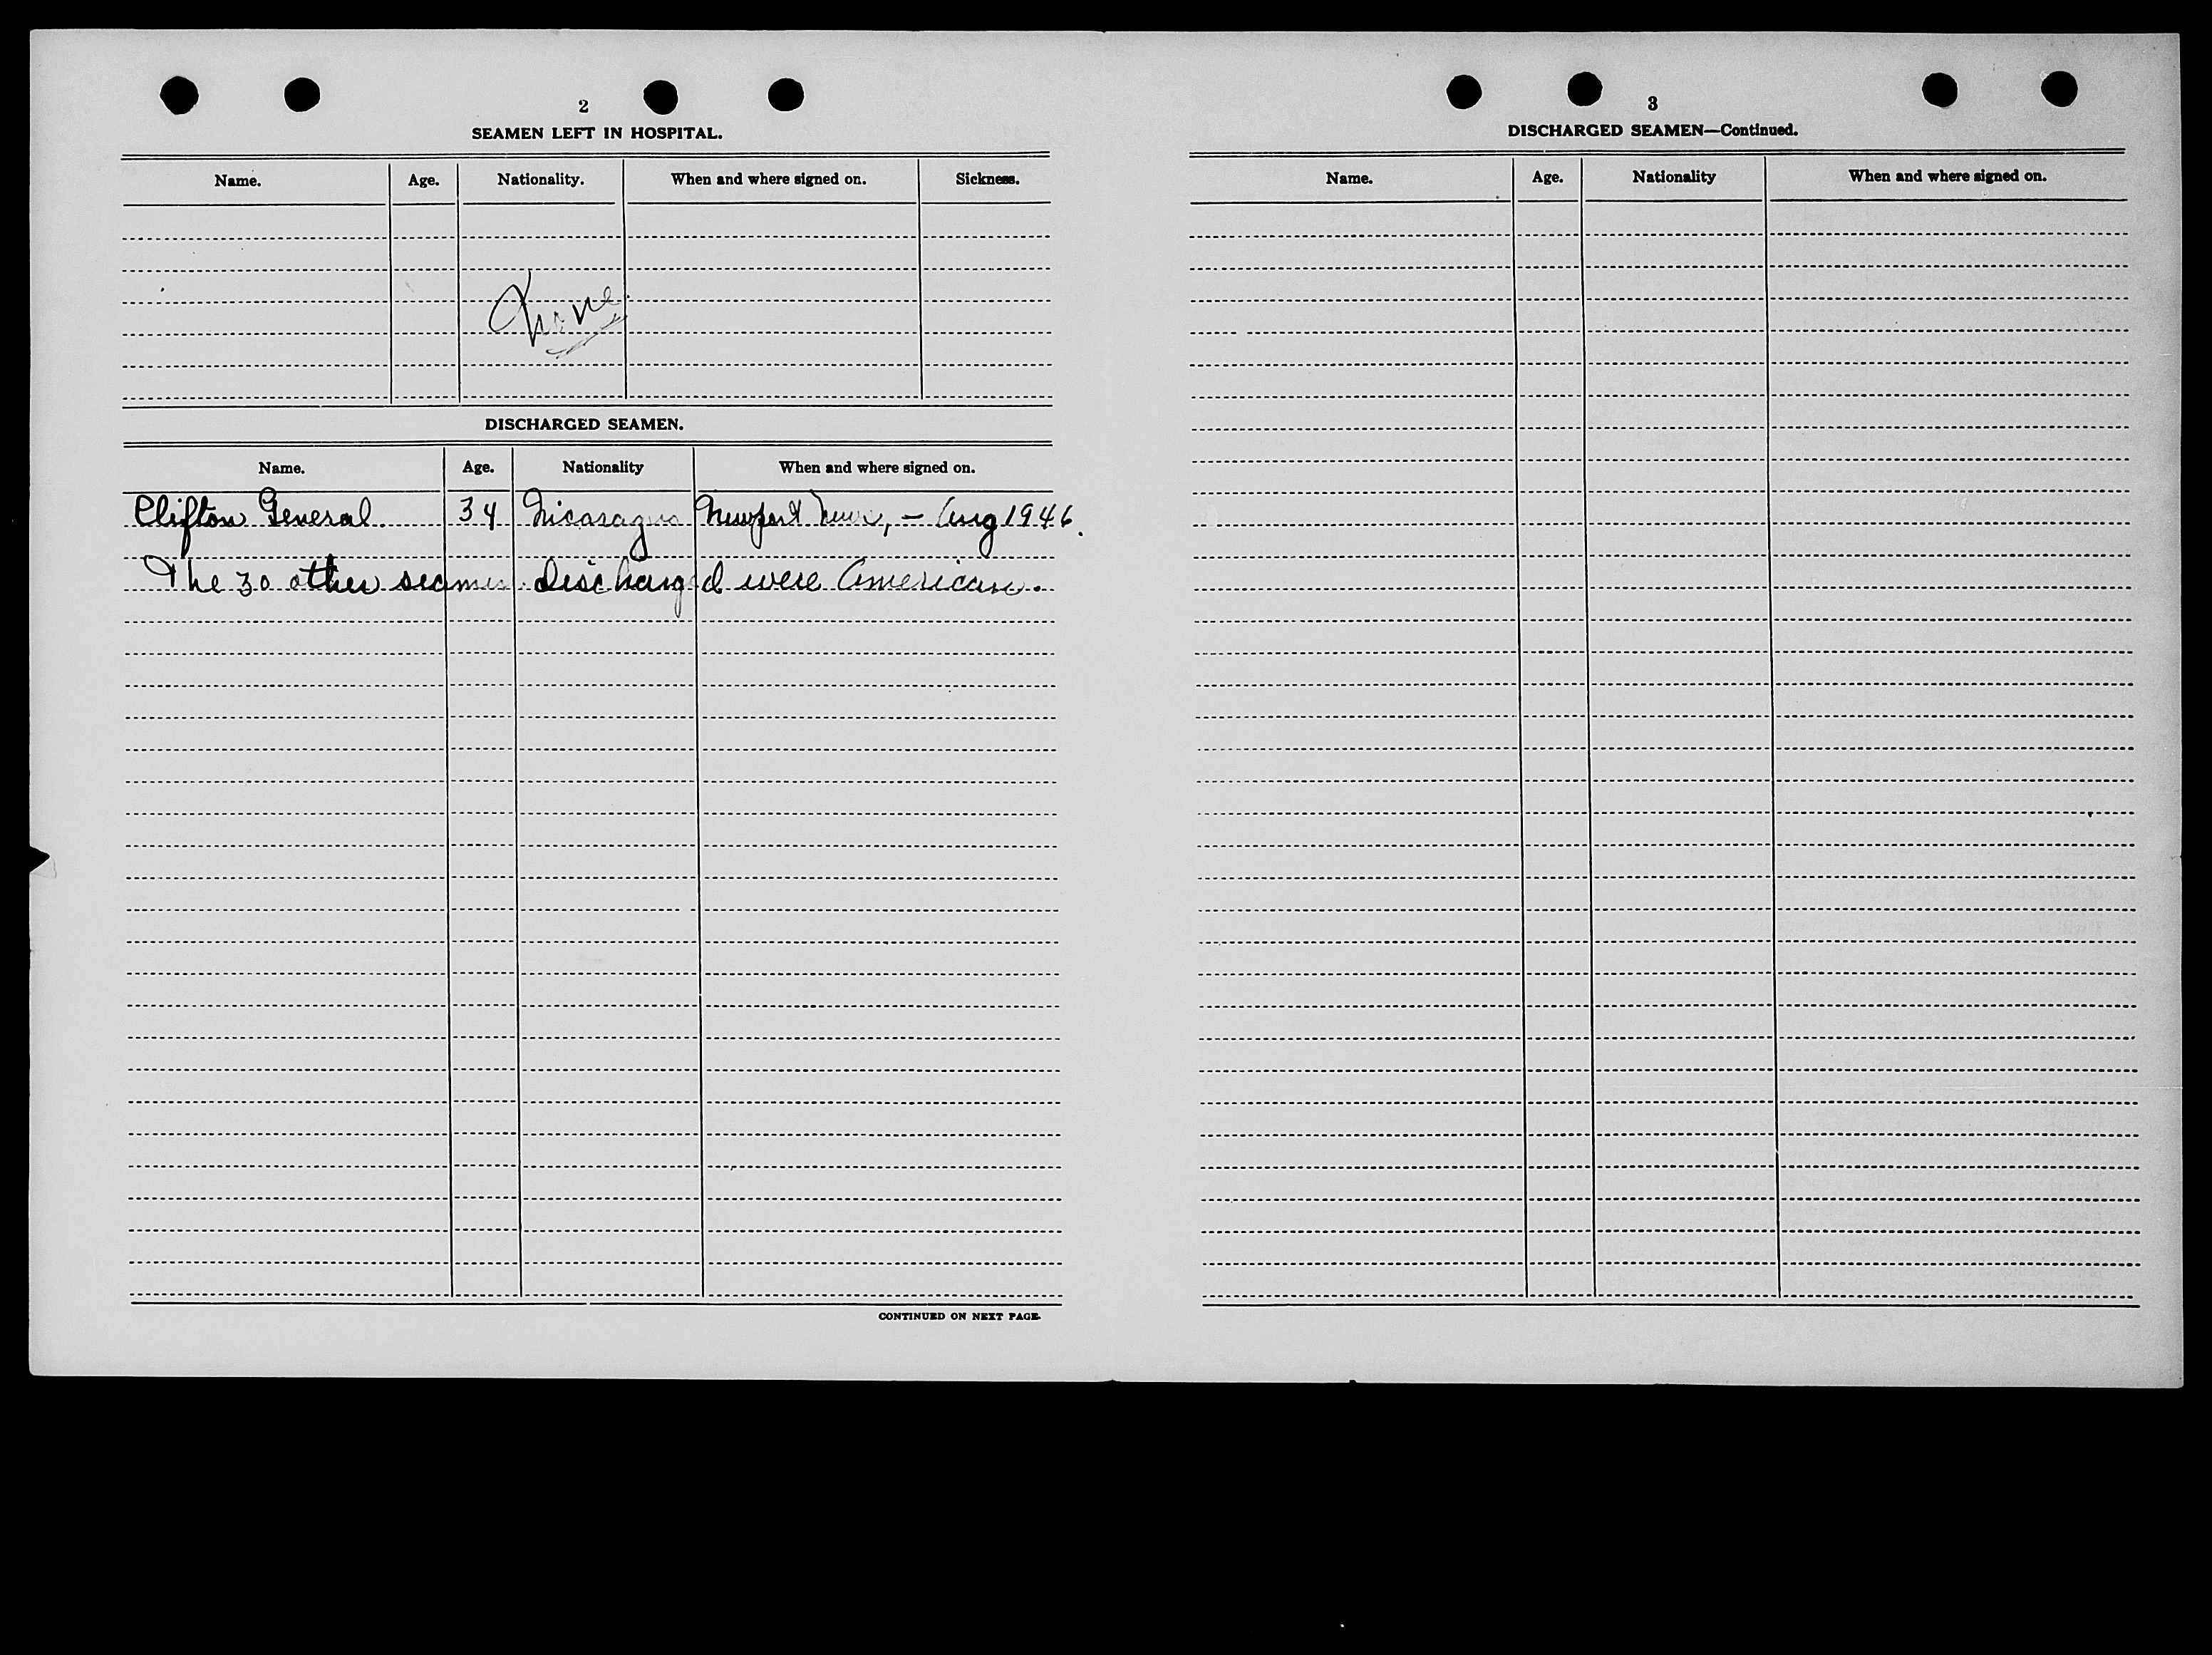 2
SEAMEN LEFT IN HOSPITAL.
Name. Age. Nationality. When and where signed on. Sickness.
None
DISCHARGED SEAMEN.
Name. Age. Nationality When and where signed on.
Clifton General. 34 Nicaragua Newport News, - Aug 1946.
The 30 other seamen discharged were American.
CONTINUED ON NEXT PAGE.
3
DISCHARGED SEAMEN—Continued.
Name. Age. Nationality When and where signed on.